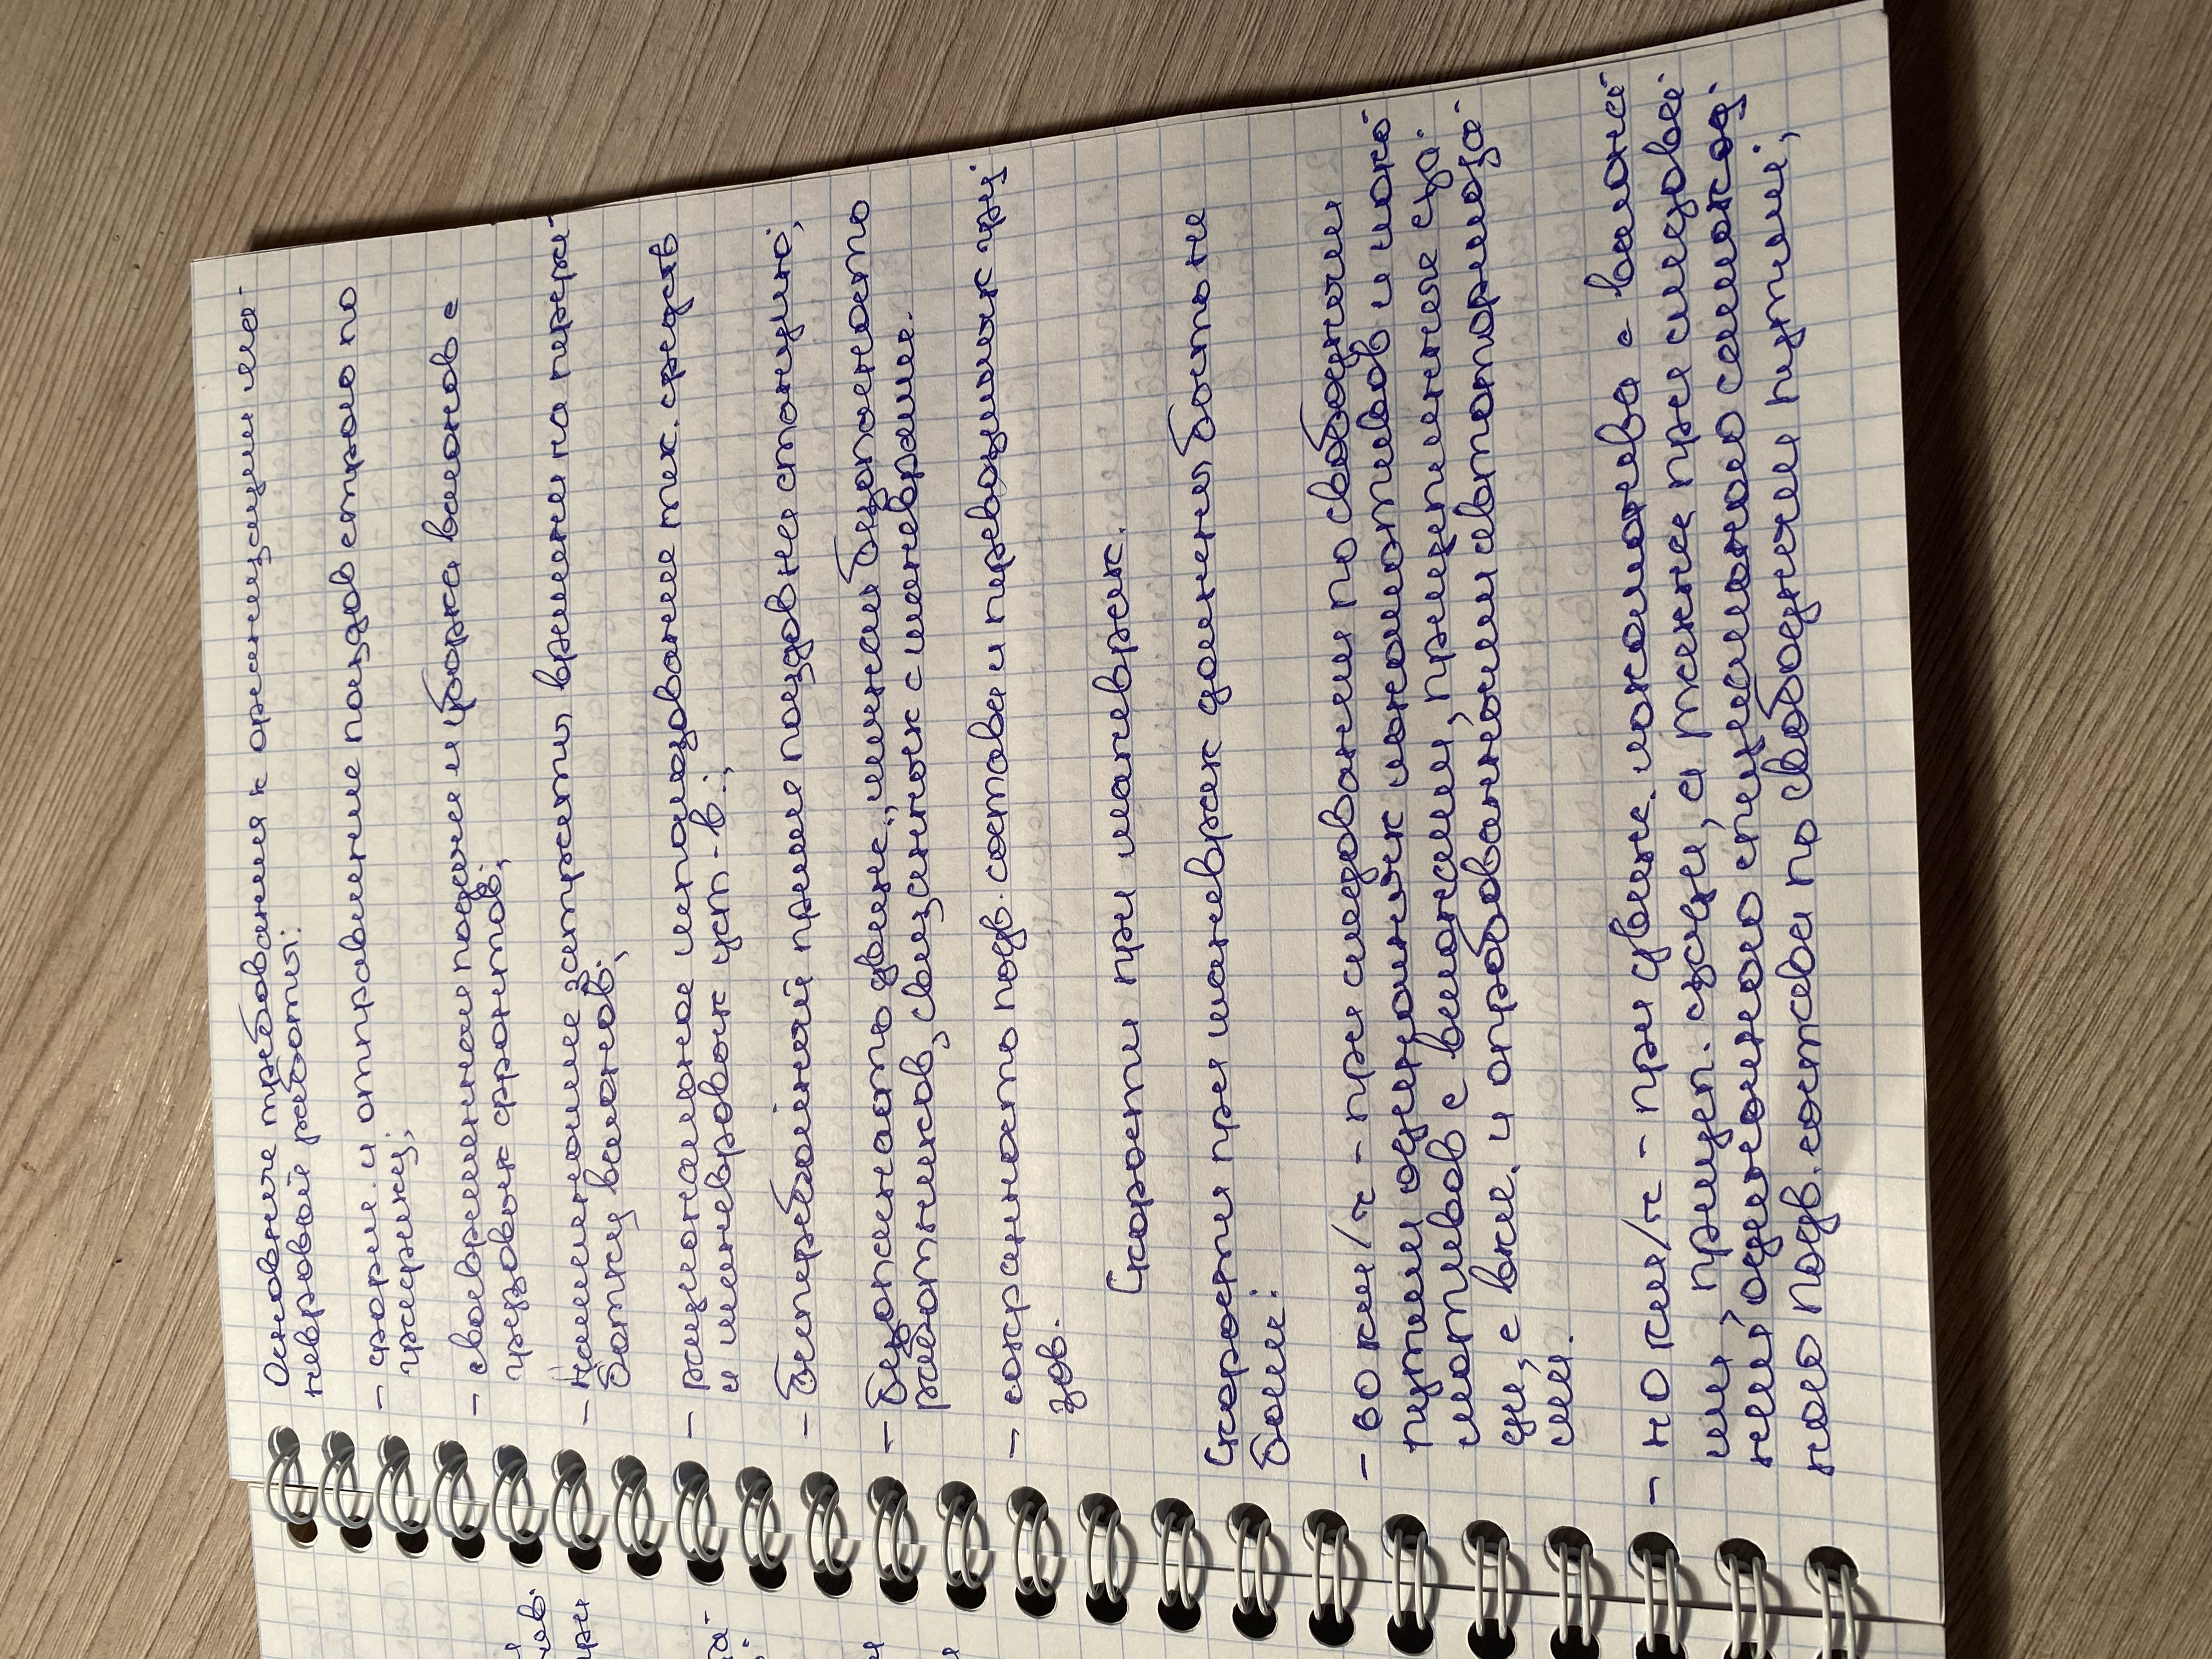 Основные требования к организации ма-
невровой работы:
- форм. и отправление поездов строго по
графику;
- своевременная подача и уборка вагонов с
грузовых фронтов;
- наименьшие затраты времени на перера-
ботку вагонов;
- рациональное использование тех. средств
и маневровых уст-в.;
- бесперебойный прием поездов на станцию;
- безопасность движ., личная безопасность
работников, связанных с маневрами.
- сохранность подв. состава и перевозимых гру-
зов.
Скорости при маневрах.
Скорости при маневрах должны быть не
более:
- 60 км/ч - при следовании по свободным
путям одиночных локомотивов и локо-
мотивов с вагонами, прицепленные сза-
ди, с вкл. и опробованными автотормоза-
ми.
- 40 км/ч - при движ. локомотива с вагона-
ми прицеп. сзади, а также при следова-
нии одиночного специального самоход-
ного подв. состава по свободным путям;
ов.
при